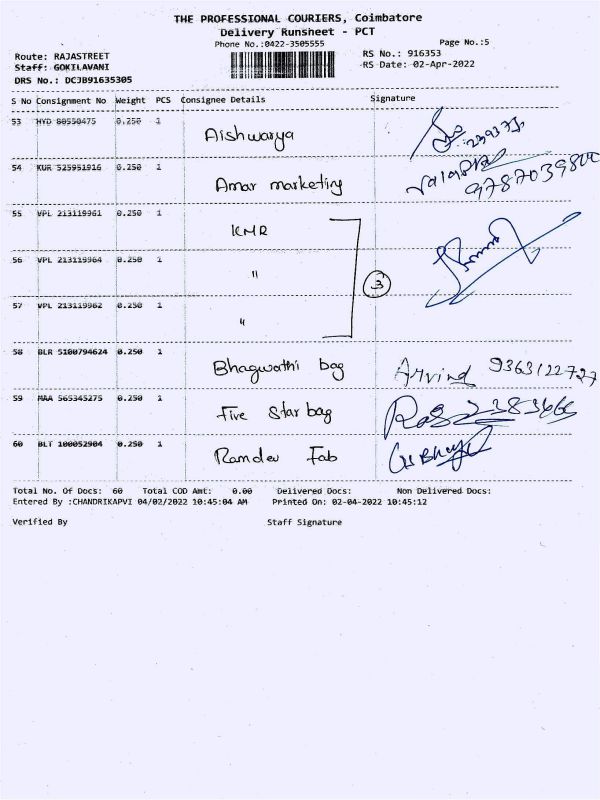 THE PROFESSIONAL COURIERS, Coimbatore
Delivery Runsheet - PCT
Phone No.:0422-3505555
Page No.:5
Route: RAJASTREET
RS No.: 916353
Staff: GOKILAVANI
RS Date: 02-Apr-2022
DRS No.: DCJB91635305
S No Consignment No Weight PCS Consignee Details Signature
53 HYD 80550475 0.250 1 Aishwarya
54 KUR 525951916 0.250 1 Amar marketing 9787039800
55 VPL 213119961 0.250 1 KMR
56 VPL 213119964 0.250 1 "
3
57 VPL 213119962 0.250 1 "
58 BLR 5100794624 0.250 1 Bhagwathi bag Arvind 9363122727
59 MAA 565345275 0.250 1 Five Star bag
60 BLT 100052904 0.250 1 Ramdev Fab
Total No. Of Docs: 60 Total COD Amt: 0.00 Delivered Docs: Non Delivered Docs:
Entered By :CHANDRIKAPVI 04/02/2022 10:45:04 AM Printed On: 02-04-2022 10:45:12
Verified By Staff Signature